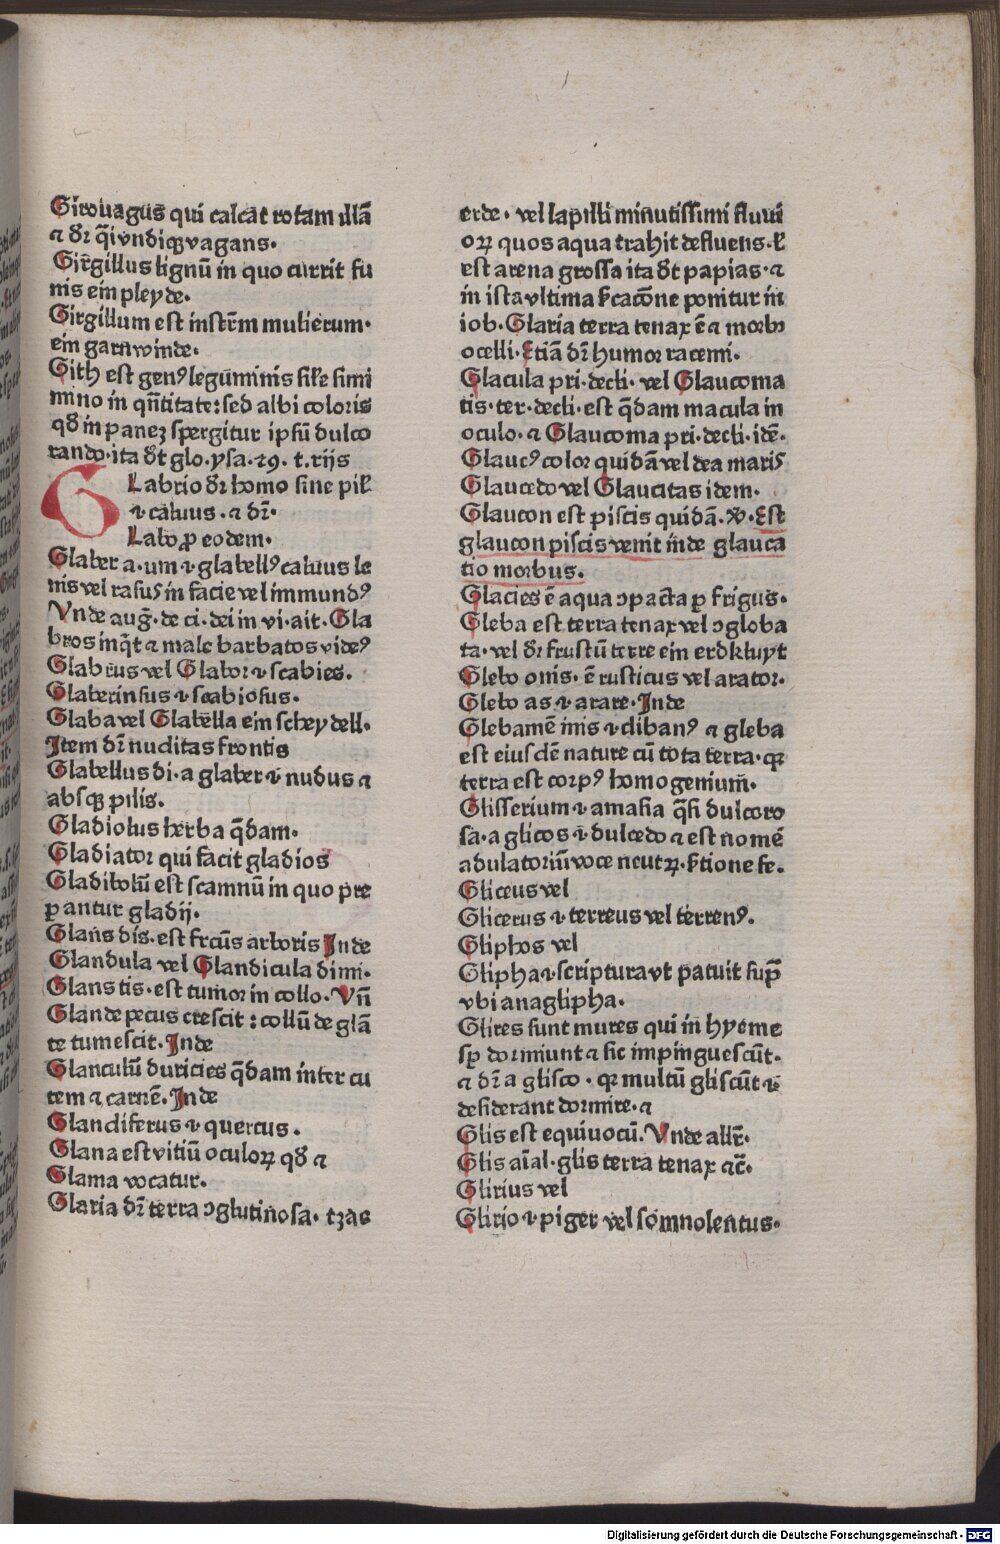 Girouagus qui calcat rotam illā
⁊ dr̄ q̄i vndiqꝫ vagans.
Girgillus lignū in quo currit fu
nis ein pleyde.
Girgillum est instr̄m mulierum.
ein garnwinde.
Gith est genꝰ leguminis sil'e simi
mino in qn̄titate: sed albi coloris
qd̛ in paneꝫ spergitur ipsū dulco
rando. ita d̛t glo. ysa. 29. t. rijs
GLabrio dr̄ homo sine pil'
⁊ caluus. ⁊ dr̄.
Labo ꝓ eodem.
Glaber a. um ⁊ glabellꝰ caluus le
nis vel rasuꝰ in facie vel immundꝰ
Vnde auḡ. de ci. dei in vi. ait. Gla
bros inq̄t ⁊ male barbatos videꝰ
Glabrus vel Glabor ⁊ scabies.
Glaberinsus ⁊ scabiosus.
Glaba vel Glabella ein scheydell.
Item dr̄ nuditas frontis
Glabellus di. a glaber ⁊ nudus ⁊
absqꝫ pilis.
Gladiolus herba q̄dam.
Gladiator qui facit gladios
Gladibolū est scamnū in quo p̄re
ꝑantur gladij.
Glans dis. est frc̄us arboris Inde
Glandula vel Glandicula dimi.
Glans tis. est tumor in collo. Vn̄
Glande pecus crescit: collū de glā
te tumescit. Inde
Glanculū duricies q̄dam inter cu
tem ⁊ carnē. Inde
Glandiferus ⁊ quercus.
Glana est vitiū oculoꝝ qd̛ ⁊
Glama vocatur.
Glaria dr̄ terra ꝯglutinosa. tzas
erde. vel lapilli minutissimi fluui
oꝝ quos aqua trahit defluens. l'
est arena grossa ita d̛t papias. ⁊
in ista vltima s'cacōne ponitur in
iob. Glaria terra tenax ē ⁊ morbꝰ
ocelli. Etiā dr̄ humor racemi.
Glacula pri. decli. vel Glaucoma
tis. ter. decli. est q̄dam macula in
oculo. ⁊ Glaucoma pri. decli. idē.
Glaucꝰ color quidā vel dea maris
Glaucedo vel Glaucitas idem.
Glaucon est piscis quidā. v̛. Est
glaucon piscis venit inde glauca
tio morbus.
Glacies ē aqua ꝯpacta ꝑ frigus.
Gleba est terra tenax vel ꝯgloba
ta. vel dr̄ frustū terre ein erdkluyt
Glebo onis. ē rusticus vel arator.
Glebo as ⁊ arare. Inde
Glebamē inis ⁊ dibanꝰ ⁊ gleba
est eiusdē nature cū tota terra. qꝛ
terra est corpꝰ homogenium̄.
Glisserium ⁊ amasia q̄si dulcoro
sa. a glicos ⁊ dulcedo ⁊ est nomē
adulatoriū voce neutꝝ. s'tione fe.
Gliceus vel
Glicerus ⁊ terreus vel terrenꝰ.
Gliphos vel
Glipha ⁊ scriptura vt patuit sup̄
vbi anaglipha.
Glires sunt mures qui in hyeme
sꝑ dormiunt ⁊ sic impinguescūt.
⁊ dr̄ a glisco. qꝛ multū gliscūt ⁊
desiderant dormire. ⁊
Glis est equiuocū. Vnde allr̄.
Glis aīal. glis terra tenax ⁊c̄.
Glirius vel
Glirio ⁊ piger vel somnolentus.
Digitalisierung gefördert durch die Deutsche Forschungsgemeinschaft - DFG